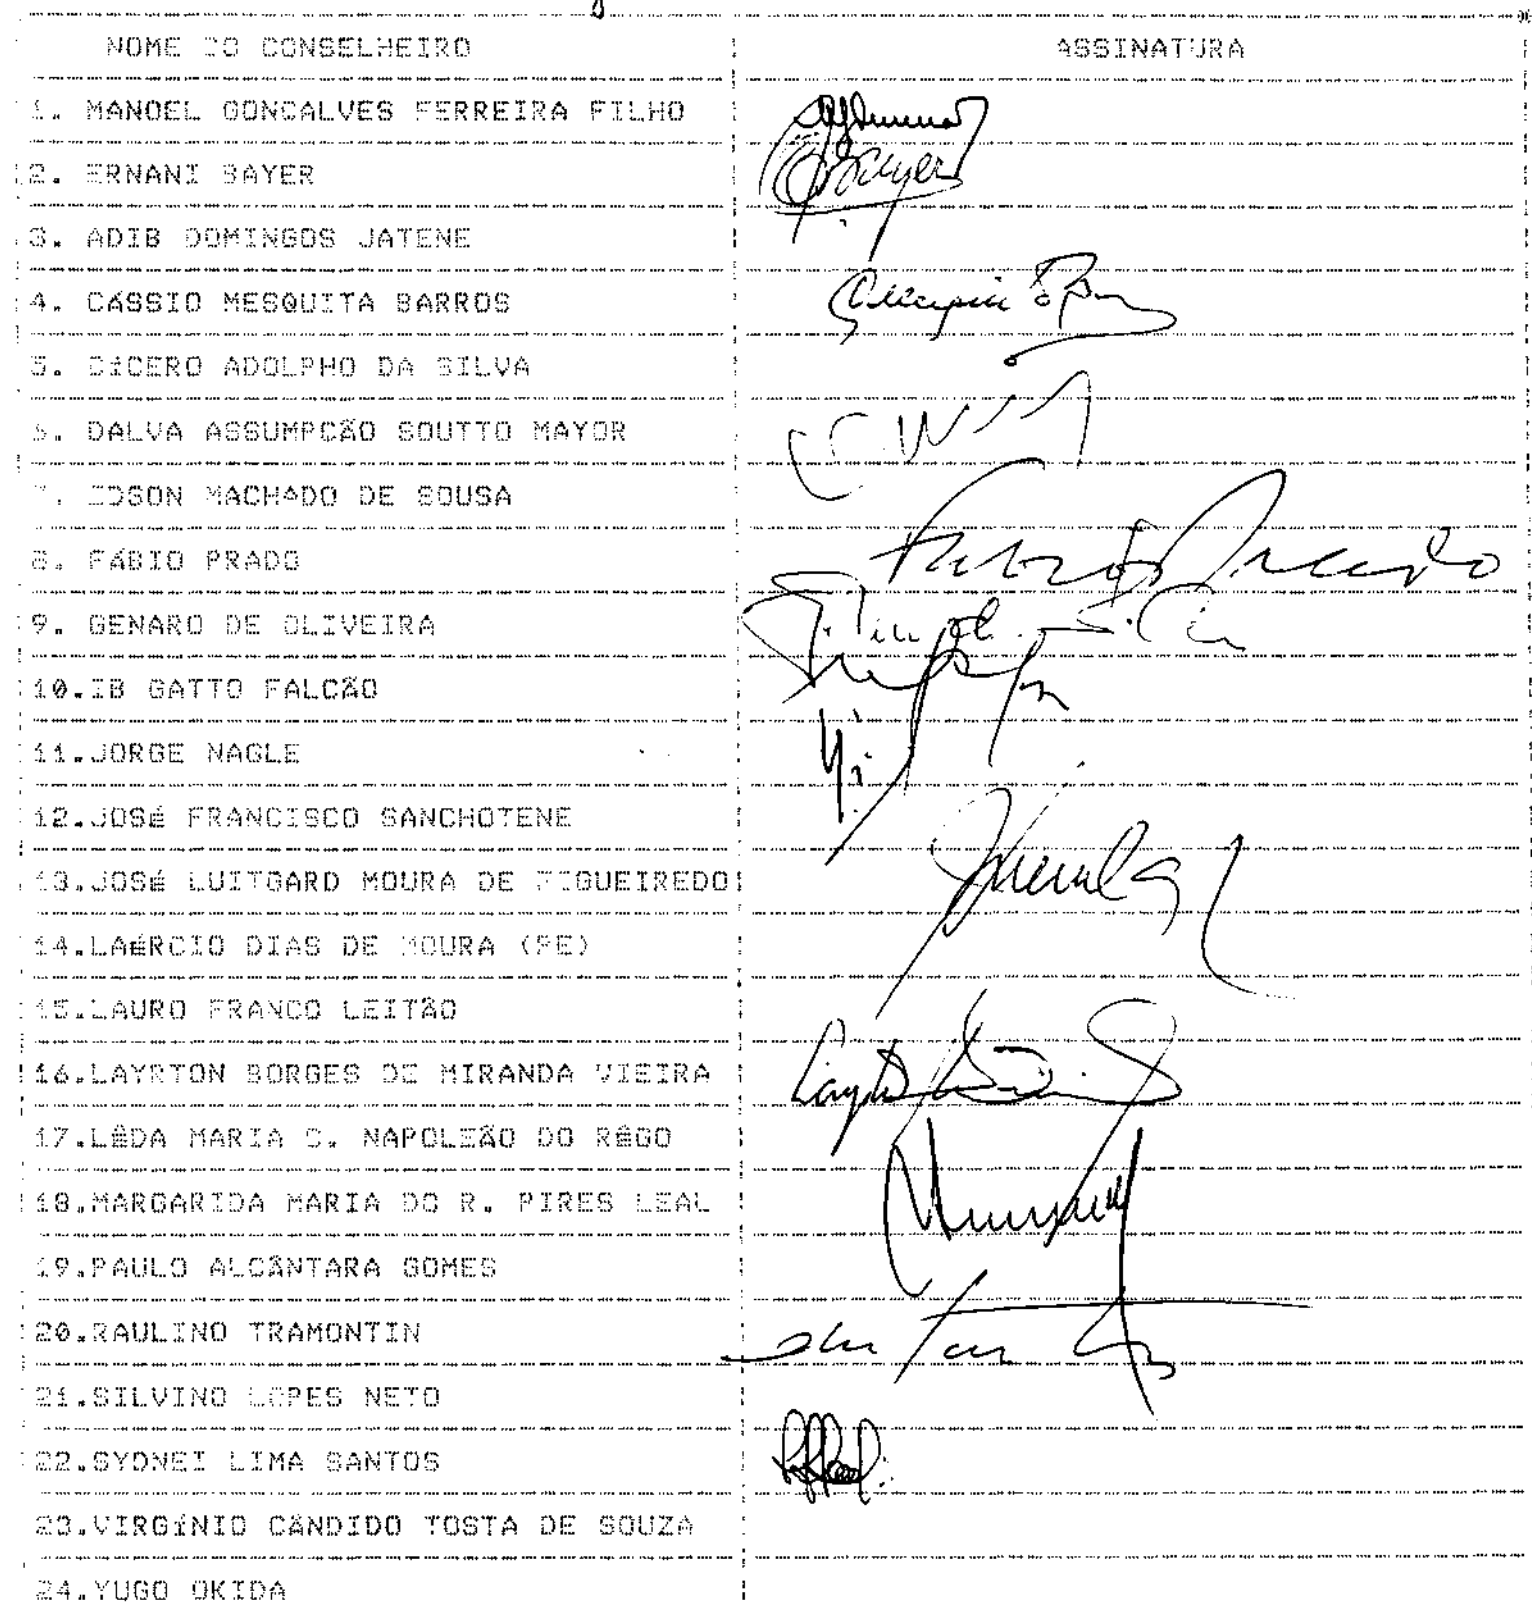 NOME DO CONSELHEIRO ASSINATURA
1. MANOEL GONCALVES FERREIRA FILHO
2. ERNANI BAYER Bayer
3. ADIB DOMINGOS JATENE
4. CÁSSIO MESQUITA BARROS
5. CÍCERO ADOLPHO DA SILVA
6. DALVA ASSUMPCÃO SOUTTO MAYOR
7. EDSON MACHADO DE SOUSA
8. FÁBIO PRADO Fábio Prado
9. GENARO DE OLIVEIRA
10.IB GATTO FALCÃO
11.JORGE NAGLE
12.JOSÉ FRANCISCO SANCHOTENE
13.JOSÉ LUITGARD MOURA DE FIGUEIREDO
14.LAÉRCIO DIAS DE MOURA (PE)
15.LAURO FRANCO LEITÃO
16.LAYRTON BORGES DE MIRANDA VIEIRA
17.LÊDA MARIA C. NAPOLEÃO DO RÊGO
18.MARGARIDA MARIA DO R. PIRES LEAL
19.PAULO ALCÂNTARA GOMES
20.RAULINO TRAMONTIN
21.SILVINO LOPES NETO
22.SYDNEI LIMA SANTOS
23.VIRGÍNIO CÂNDIDO TOSTA DE SOUZA
24.YUGO OKIDA